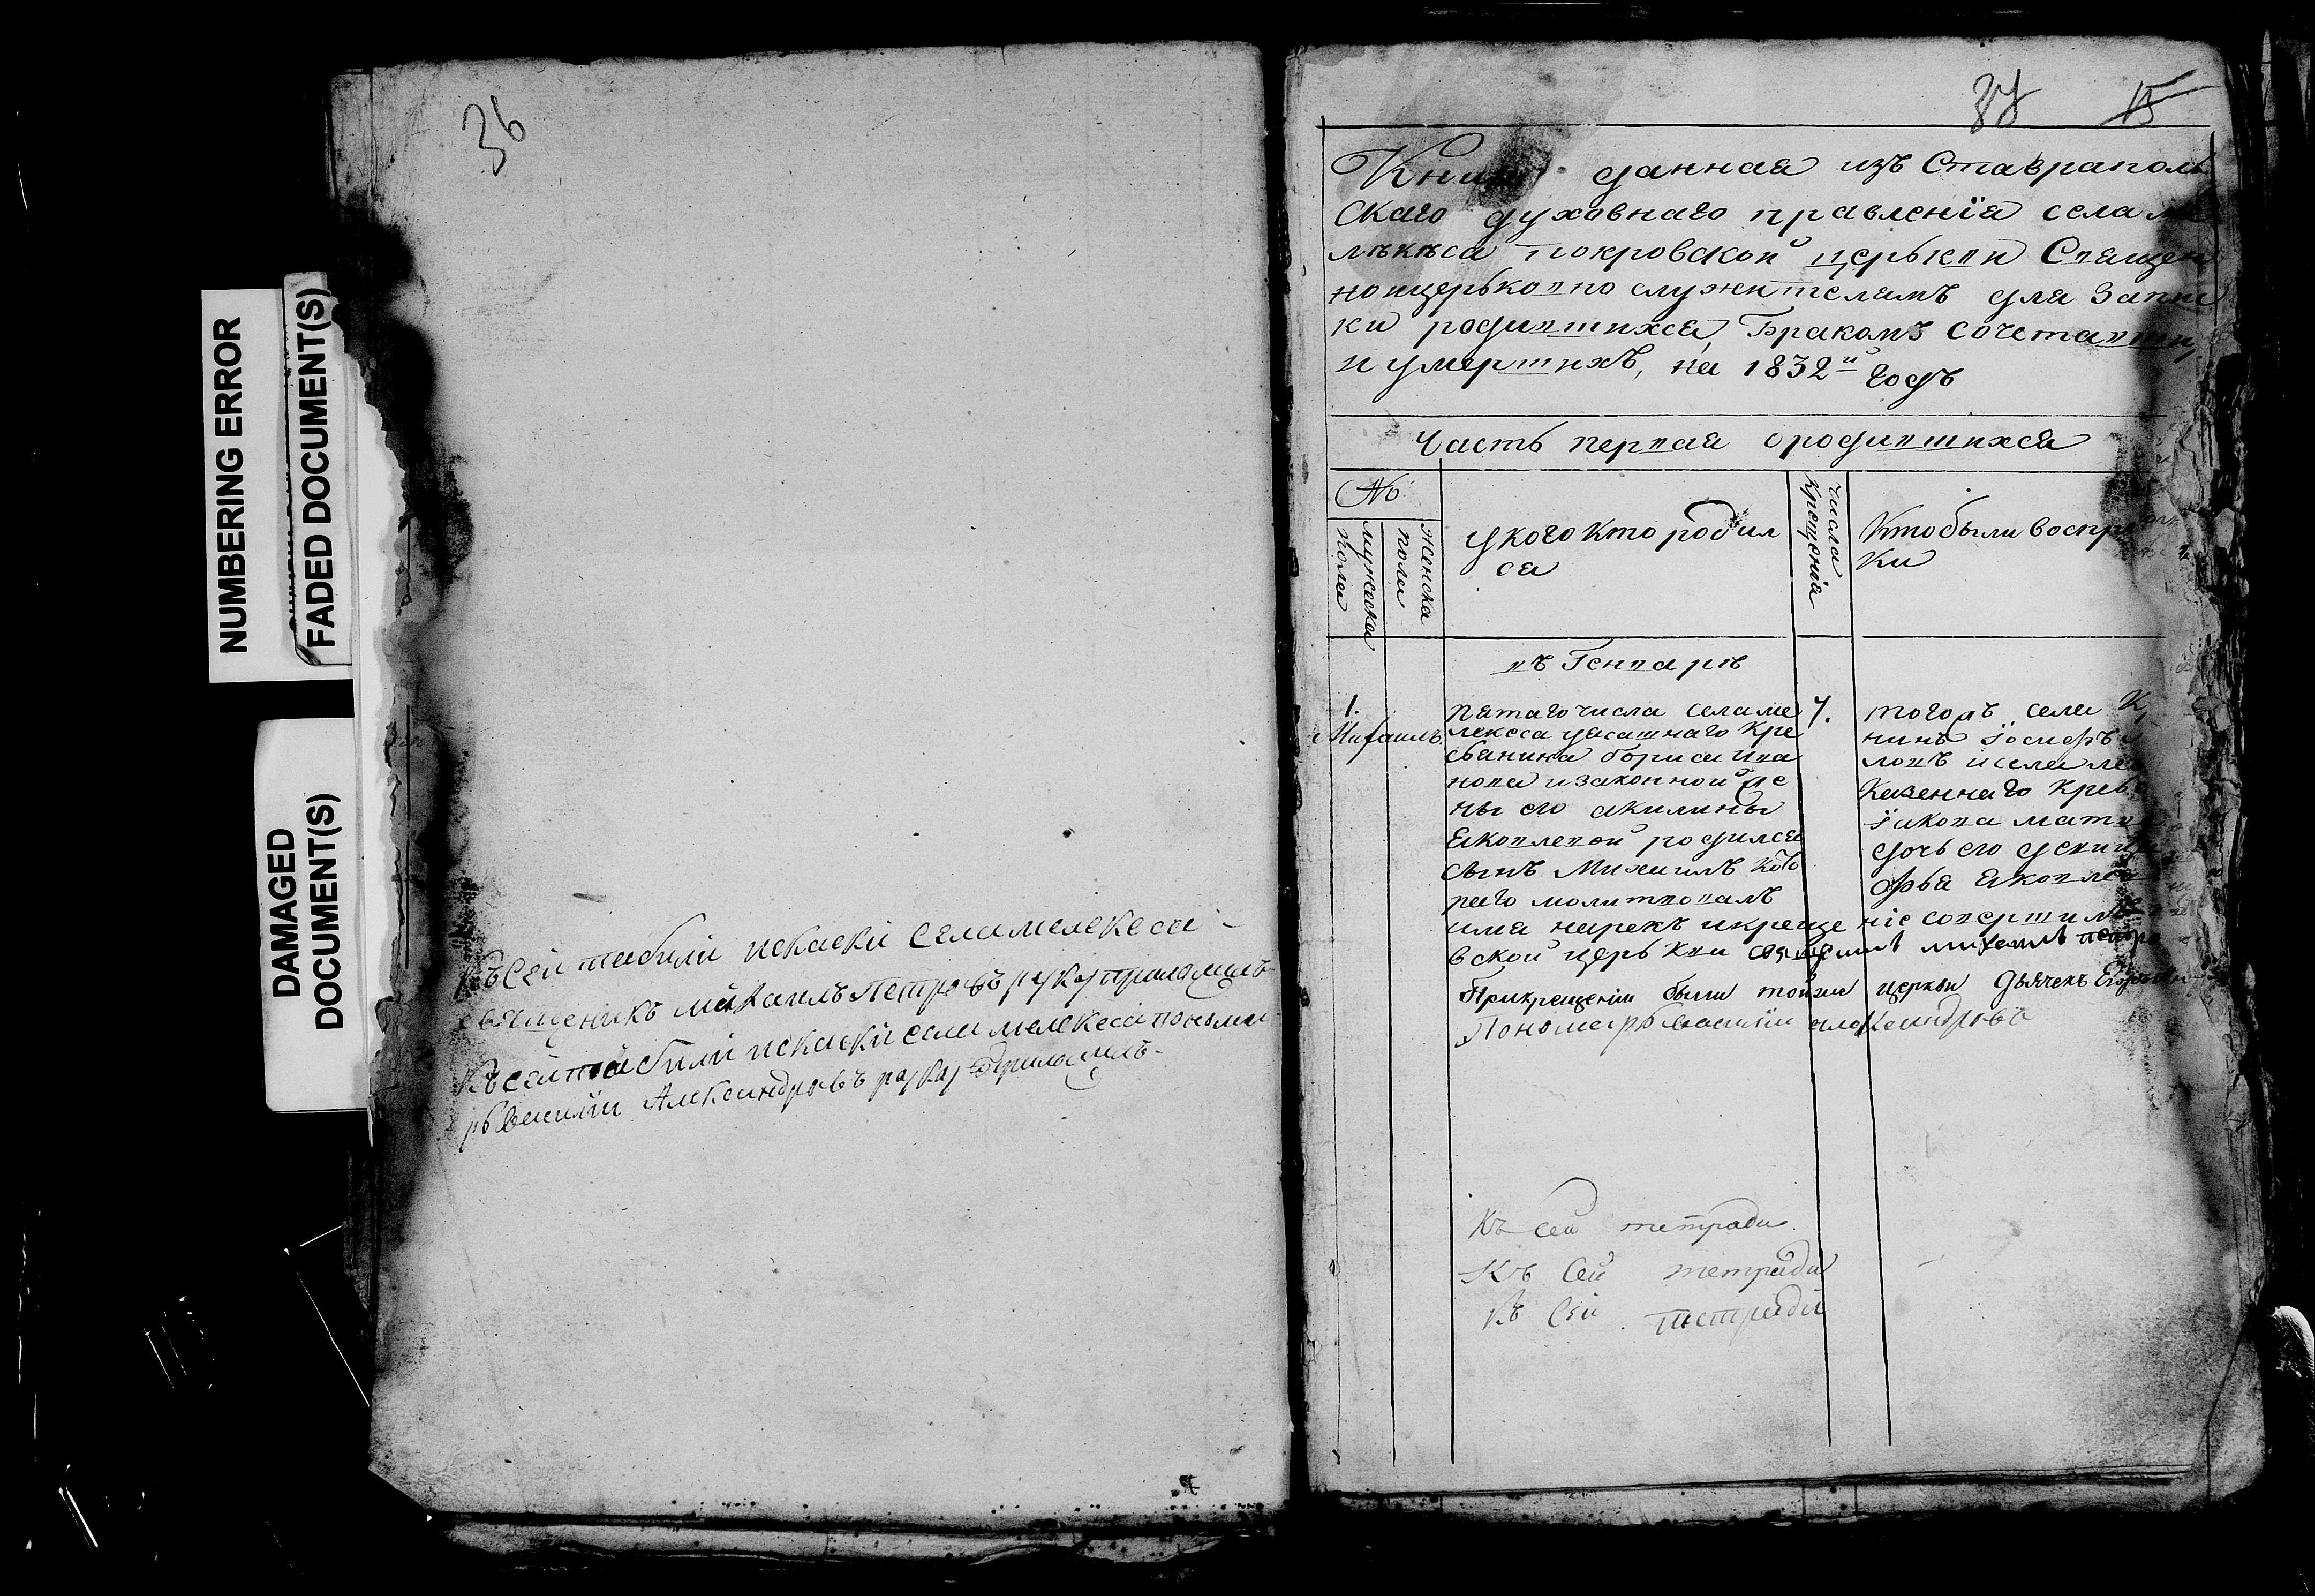 NUMBERING ERROR
FADED DOCUMENT(S)
DAMAGED
DOCUMENT(S)
36
Къ сей табили искаски села мелекеса
священикъ михаилъ Петровъ руку приложилъ
Къ сей табили искаски села мелекеса понома
рь василiи Александровъ руку приложилъ
37 15
Книга данная изъ Ставраполь
скаго духовнаго правленїя села ме
лѣкѣса покровской церькви Священ
ноцерьковно служителямъ для запис
ки родившихся, Бракомъ сочетавши,
и умершихъ, на 1832й годъ
Часть первая о родившихся
№
мужеска
полa
женска
пола
у кого кто родил
ся
числа
крещенїя
Кто были воспр
ки
въ Генваре
1.
Михаилъ
пятаго числа села ме
лекеса удешнаго Кре
сьянина бориса Ива
нова и законной же
ны его акилины
Яковлевой родился
сынъ Михаилъ кото
раго молитвовалъ
имя нарекъ и креще нїе совершилъ
вской церькви священ михаилъ петро
При крещенїи были тойже церкви Дьячекъ
Пономарь василїи александровъ
7.
тогожъ села К
нинъ їосифъ
ловъ и села
Казенного Кресь
їакова матв
дочь его девица
Яковле
Къ сей тетради
Къ сей тетради
Къ сей тетради